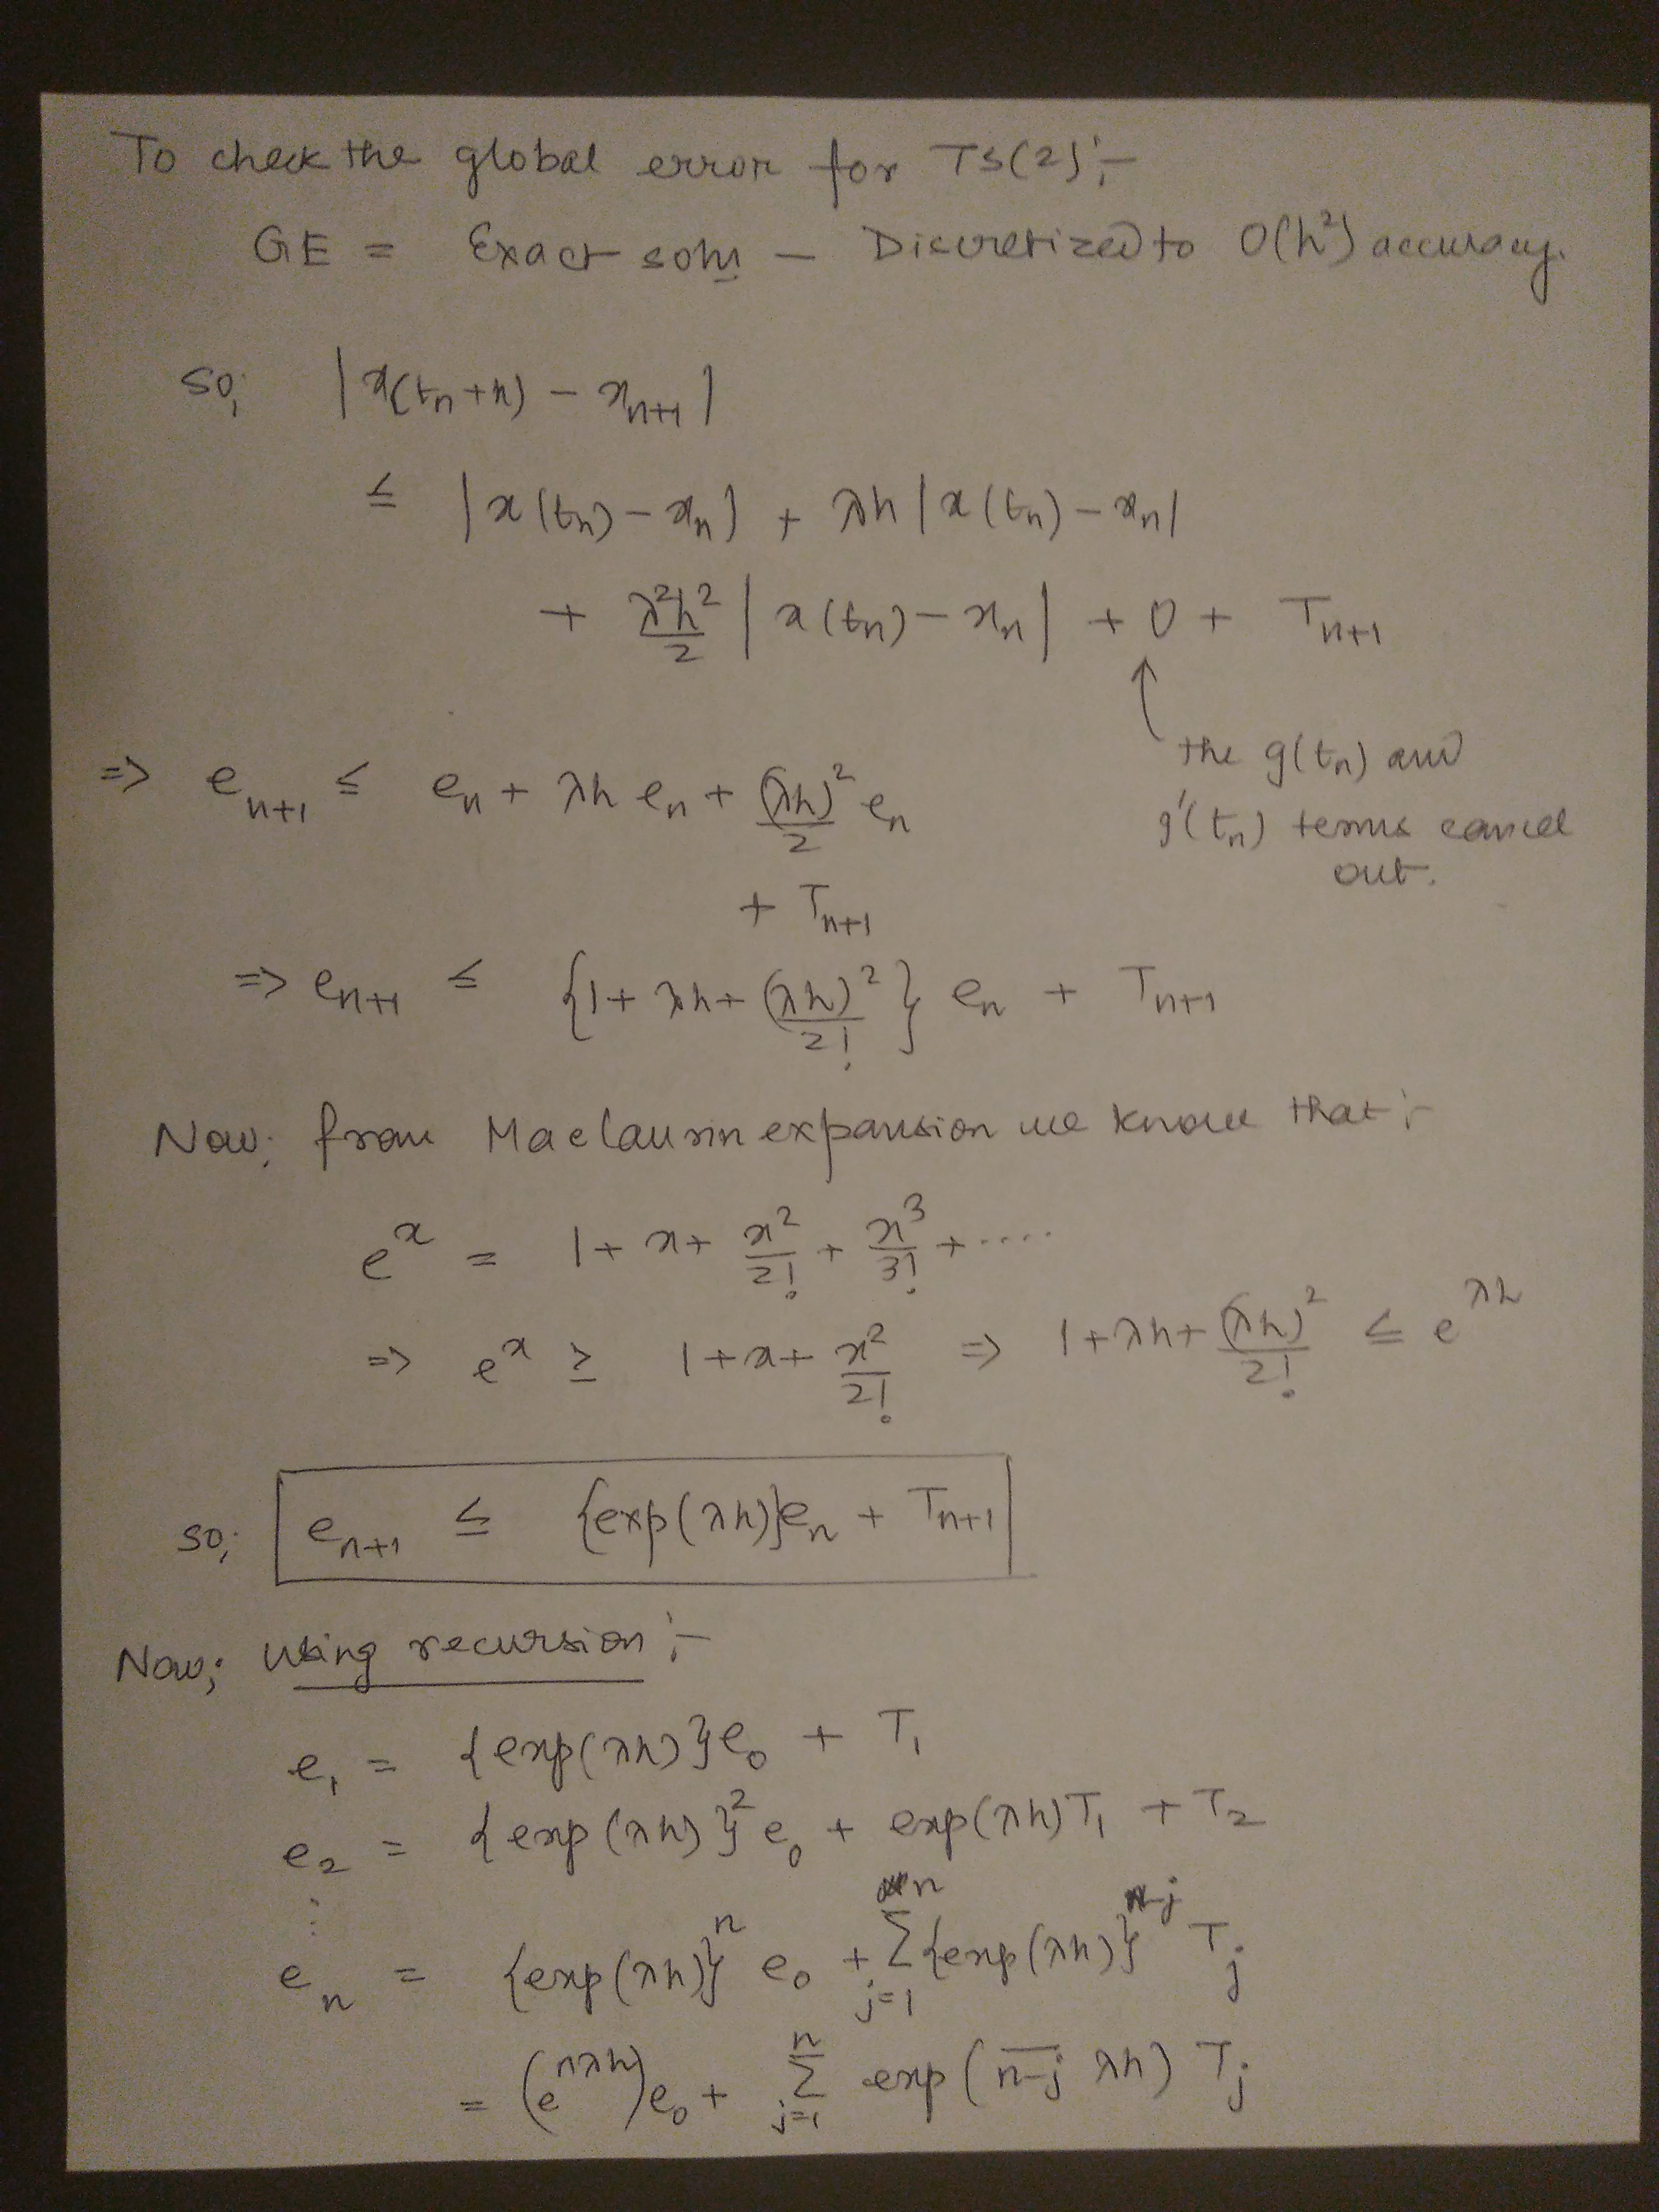 To check the global error for TS(2):-
GE = Exact soln - Discretized to O(h²) accuracy.
so; |x(tₙ+h) - xₙ₊₁|
≤ |x(tₙ) - xₙ| + λh |x(tₙ) - xₙ|
+ λ²h²/2 |x(tₙ) - xₙ| + 0 + Tₙ₊₁
↑
the g(tₙ) and
g'(tₙ) terms cancel
out.
=> eₙ₊₁ ≤ eₙ + λh eₙ + (λh)²/2 eₙ
+ Tₙ₊₁
=> eₙ₊₁ ≤ {1 + λh + (λh)²/2!} eₙ + Tₙ₊₁
Now; from Maclaurin expansion we know that:-
eˣ = 1 + x + x²/2! + x³/3! + ....
=> eˣ ≥ 1 + x + x²/2! => 1 + λh + (λh)²/2! ≤ e^(λh)
so; eₙ₊₁ ≤ {exp(λh)}eₙ + Tₙ₊₁
Now; using recursion:-
e₁ = {exp(λh)}e₀ + T₁
e₂ = {exp(λh)}² e₀ + exp(λh)T₁ + T₂
⋮
eₙ = {exp(λh)}ⁿ e₀ + Σ_{j=1}^{n} {exp(λh)}^{n-j} T_j
= (e^{nλh})e₀ + Σ_{j=1}^{n} exp(\overline{n-j} λh) T_j